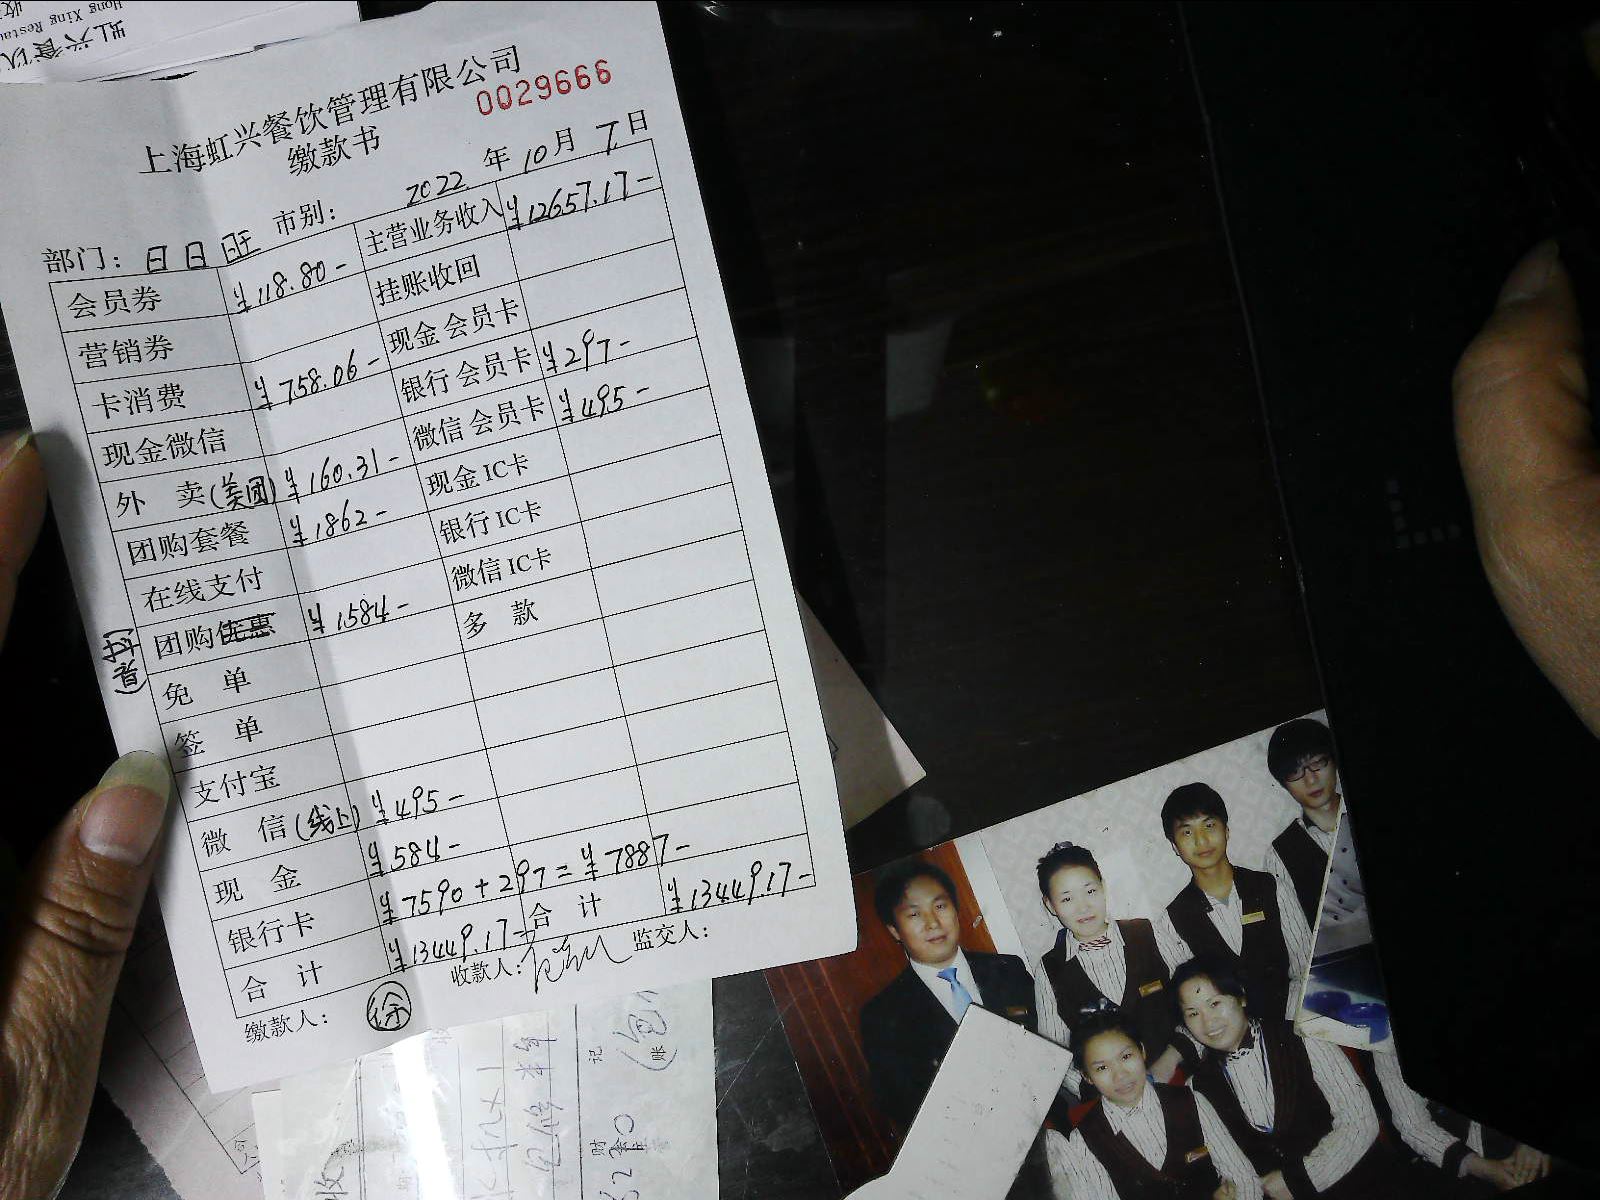 上海虹兴餐饮管理有限公司
0029666
缴款书
部门: 日日旺 市别: 2022 年 10 月 7 日
会员券 ¥118.80- 主营业务收入 ¥12657.17-
营销券 挂账收回
卡消费 ¥758.06- 现金会员卡
现金微信 银行会员卡 ¥297-
外 卖(美团) ¥160.31- 微信会员卡 ¥495-
团购套餐 ¥1862- 现金IC卡
在线支付 银行IC卡
团购优惠 ¥1584- 微信IC卡
(抖音)
免 单 多 款
签 单
支付宝
微 信(线上) ¥495-
现 金 ¥584-
银行卡 ¥7590+297=¥7887-
合 计 ¥13449.17- 合 计 ¥13449.17-
缴款人: 徐 收款人: 监交人:
Hong Xing Restau